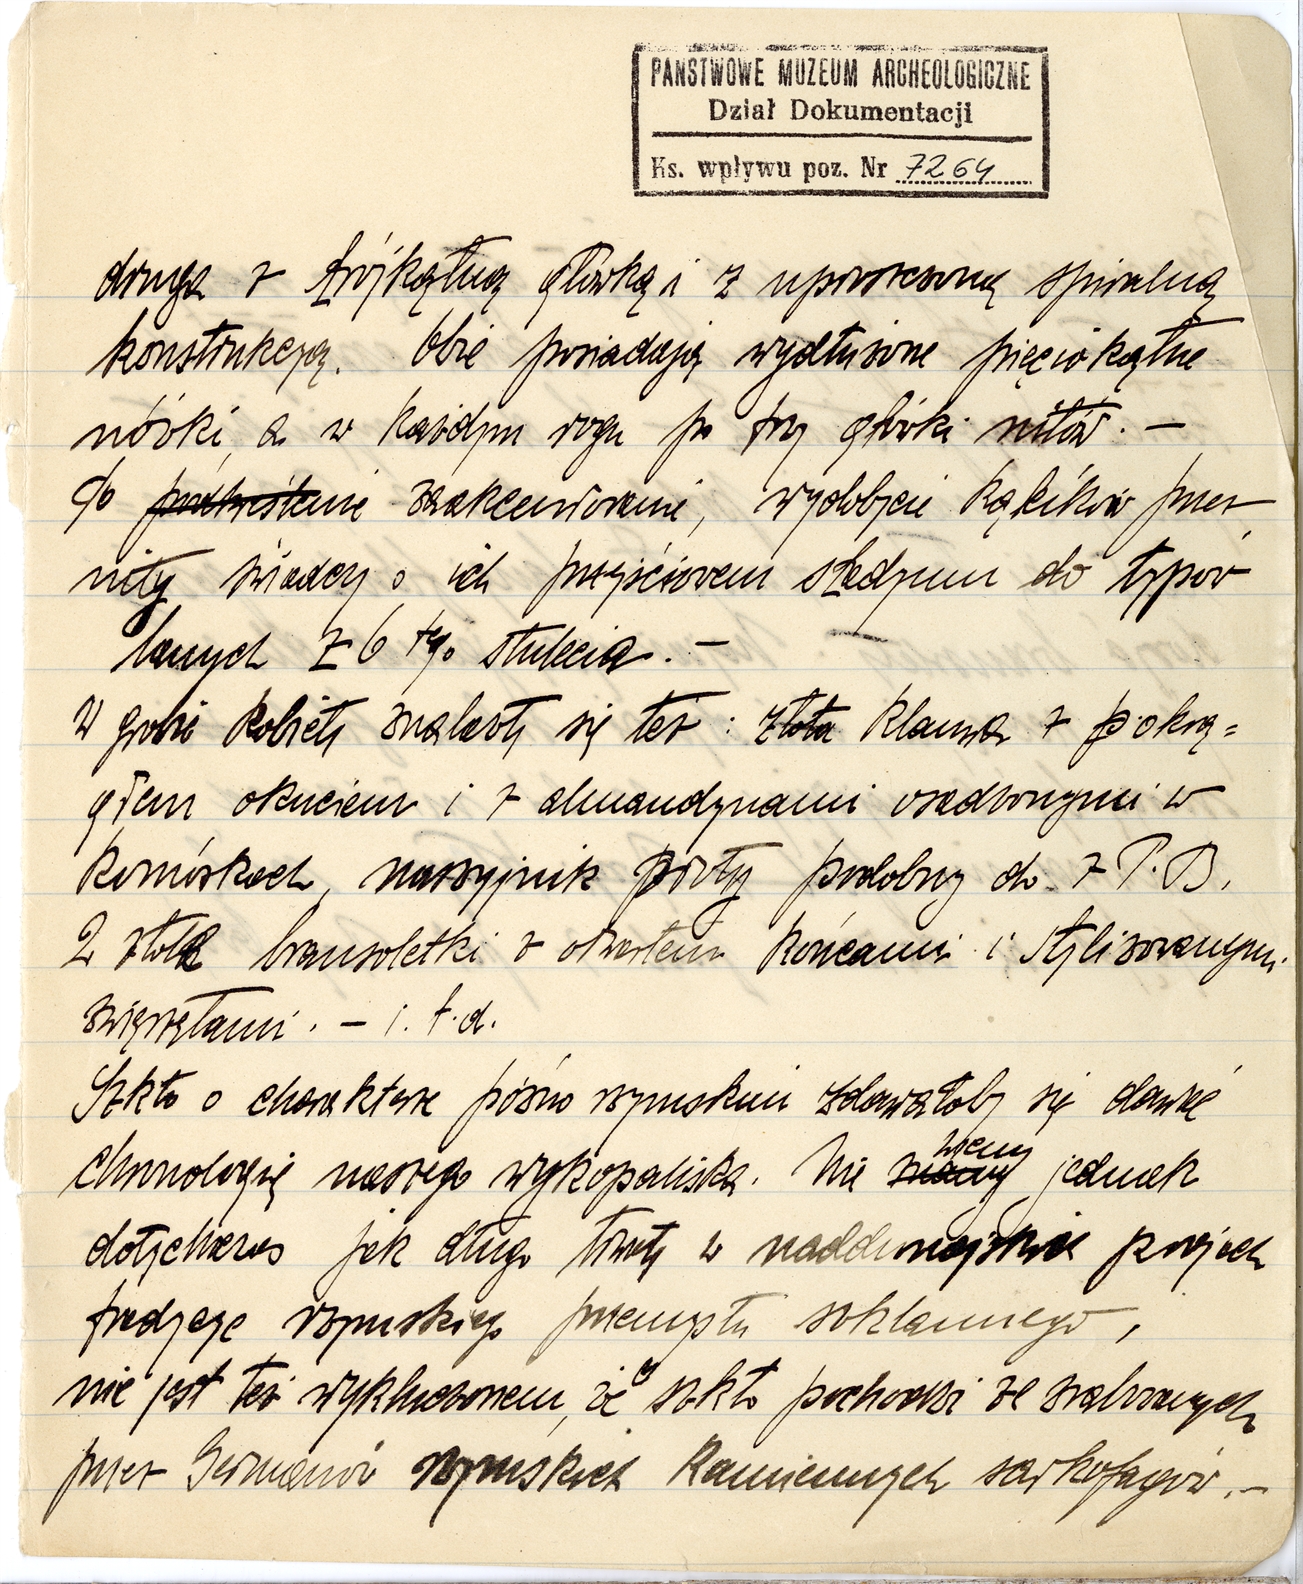 PAŃSTWOWE MUZEUM ARCHEOLOGICZNE
Dział Dokumentacji
Ks. wpływu poz. Nr 7264
druga z trójkątną główką i z uproszczoną spiralną
konstrukcyą. Obie posiadają wydłużone pięciokątne
nóżki, a w każdym rogu po trzy główki nitów. —
podkreślenie zaakcentowanie, wydobycie kącików przez
nity świadczy o ich przejściowem stadyum do typów
lanych z 6 tego stulecia. —
W grobie kobiety znalazły się też : złota klamra z pokrą=
głem okuciem i z almandynami osadzonymi w
komórkach, naszyjnik podobny do z P. B.
2 złote bransoletki z otwartemi końcami i stylizowanymi
zwierzętami. — i. t. d.
Szkło o charakterze późno rzymskim zdawałoby się dawać
chronologię naszego wykopaliska. Nie znamy wiemy jednak
dotychczas jak długo trwały w naddunajskich
tradycye rzymskiego przemysłu szklannego,
nie jest też wykluczonem, że szkło pochodzi ze zrabowanych
przez Germanów rzymskich kamiennych sarkofagów. —